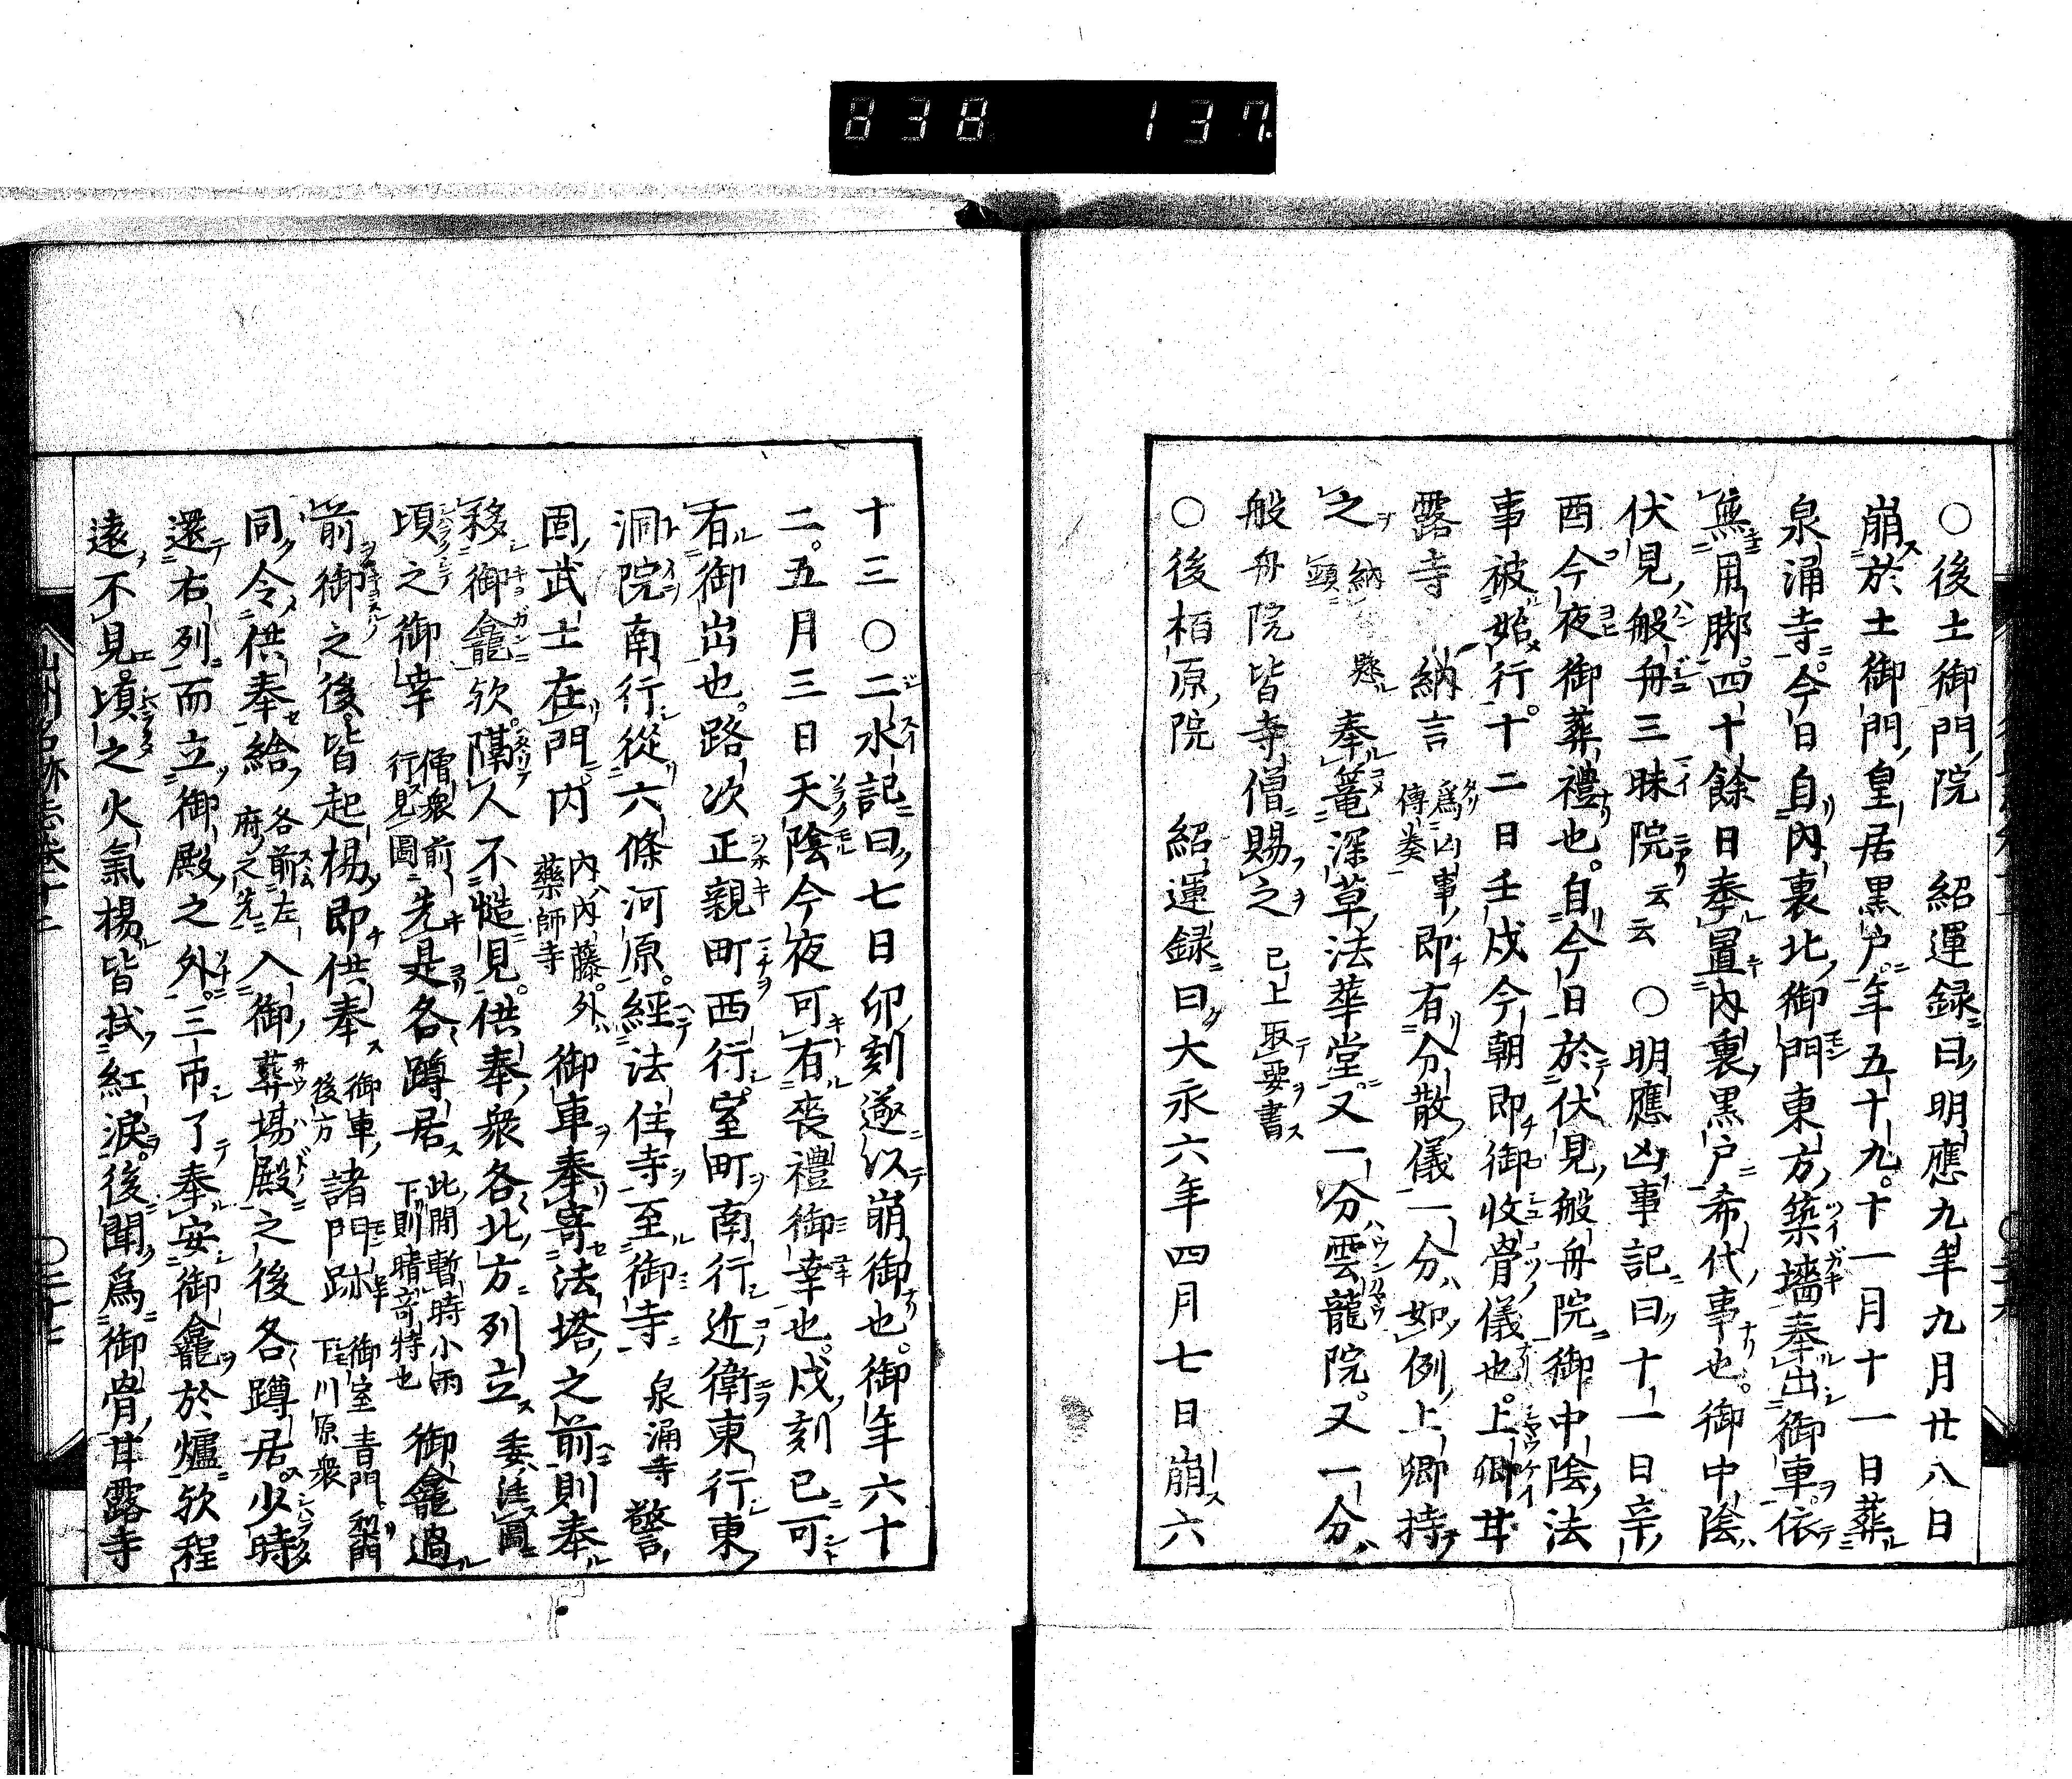 838 137
○後土御門院 紹運録曰明應九年九月廿八日
崩於土御門皇居黒戸年五十九十一月十一日葬
泉涌寺今日自內裏北御門東方築墻奉出御車依
無用脚四十餘日奉置內裏黒戸希代事也御中陰
伏見般舟三昧院云云 ○明應凶事記曰十一日辛
酉今夜御葬禮也自今日於伏見般舟院御中陰法
事被始行十二日壬戌今朝即御收骨儀也上卿甘
露寺 納言 爲凶事傳奏 即有分散儀一分如例上卿持
之 納頸懸 奉篭深草法華堂又一分雲龍院又一分
般舟院皆寺僧賜之 已上取要書
○後栢原院 紹運録曰大永六年四月七日崩六
十三○二水記曰七日卯刻遂以崩御也御年六十
二五月三日天陰今夜可有喪禮御幸也戌刻已可
有御出也路次正親町西行室町南行近衛東行東
洞院南行從六條河原經法住寺至御寺 泉涌寺 警
固武士在門內 內內藤外藥師寺 御車奉寄法塔之前則奉
移御龕欤隔人不慥見供奉衆各北方列立 委注圖
頃之御幸 僧衆前行見圖 先是各蹲居 此間暫時小雨下則晴竒特也 御龕過
前御之後皆起楊即供奉 御車後方 諸門跡 御室青門下川原衆
同令供奉給 各前左府之先 入御葬場殿之後各蹲居少時
還右列而立御殿之外三帀了奉安御龕於爐欤程
遠不見頃之火氣楊皆拭紅淚後聞爲御骨甘露寺
山州名跡志卷十二